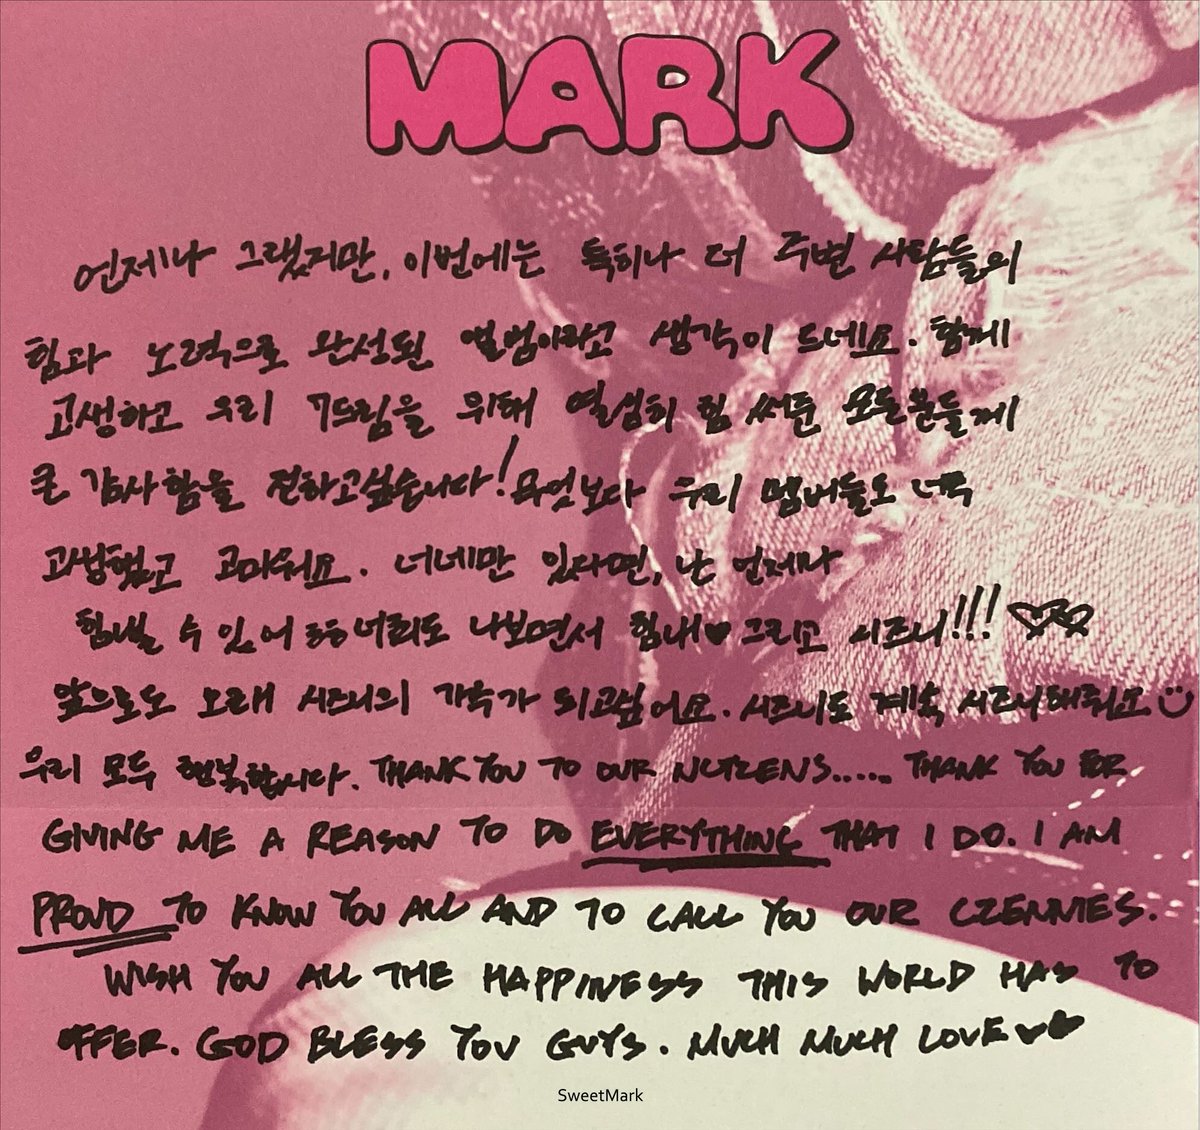 MARK
언제나 그랬지만, 이번에는 특히나 더 주변 사람들의
힘과 노력으로 완성된 앨범이라고 생각이 드네요. 함께
고생하고 우리 7드림을 위해 열심히 힘 써준 모든분들께
큰 감사함을 전하고싶습니다! 무엇보다 우리 멤버들도 너무
고생했고 고마워요. 너네만 있다면, 난 언제나
힘낼 수 있어 ㅎㅎ 너희도 나보면서 힘내♥ 그리고 시즈니!!! ♡♡
앞으로도 오래 시즈니의 가수가 되고싶어요. 시즈니도 계속 시즈니해줘요 :)
우리 모두 행복합시다. THANK YOU TO OUR NCTZENS...... THANK YOU FOR
GIVING ME A REASON TO DO EVERYTHING THAT I DO. I AM
PROUD TO KNOW YOU ALL AND TO CALL YOU OUR CZENNIES.
WISH YOU ALL THE HAPPINESS THIS WORLD HAS TO
OFFER. GOD BLESS YOU GUYS. MUCH MUCH LOVE♥♥
SweetMark